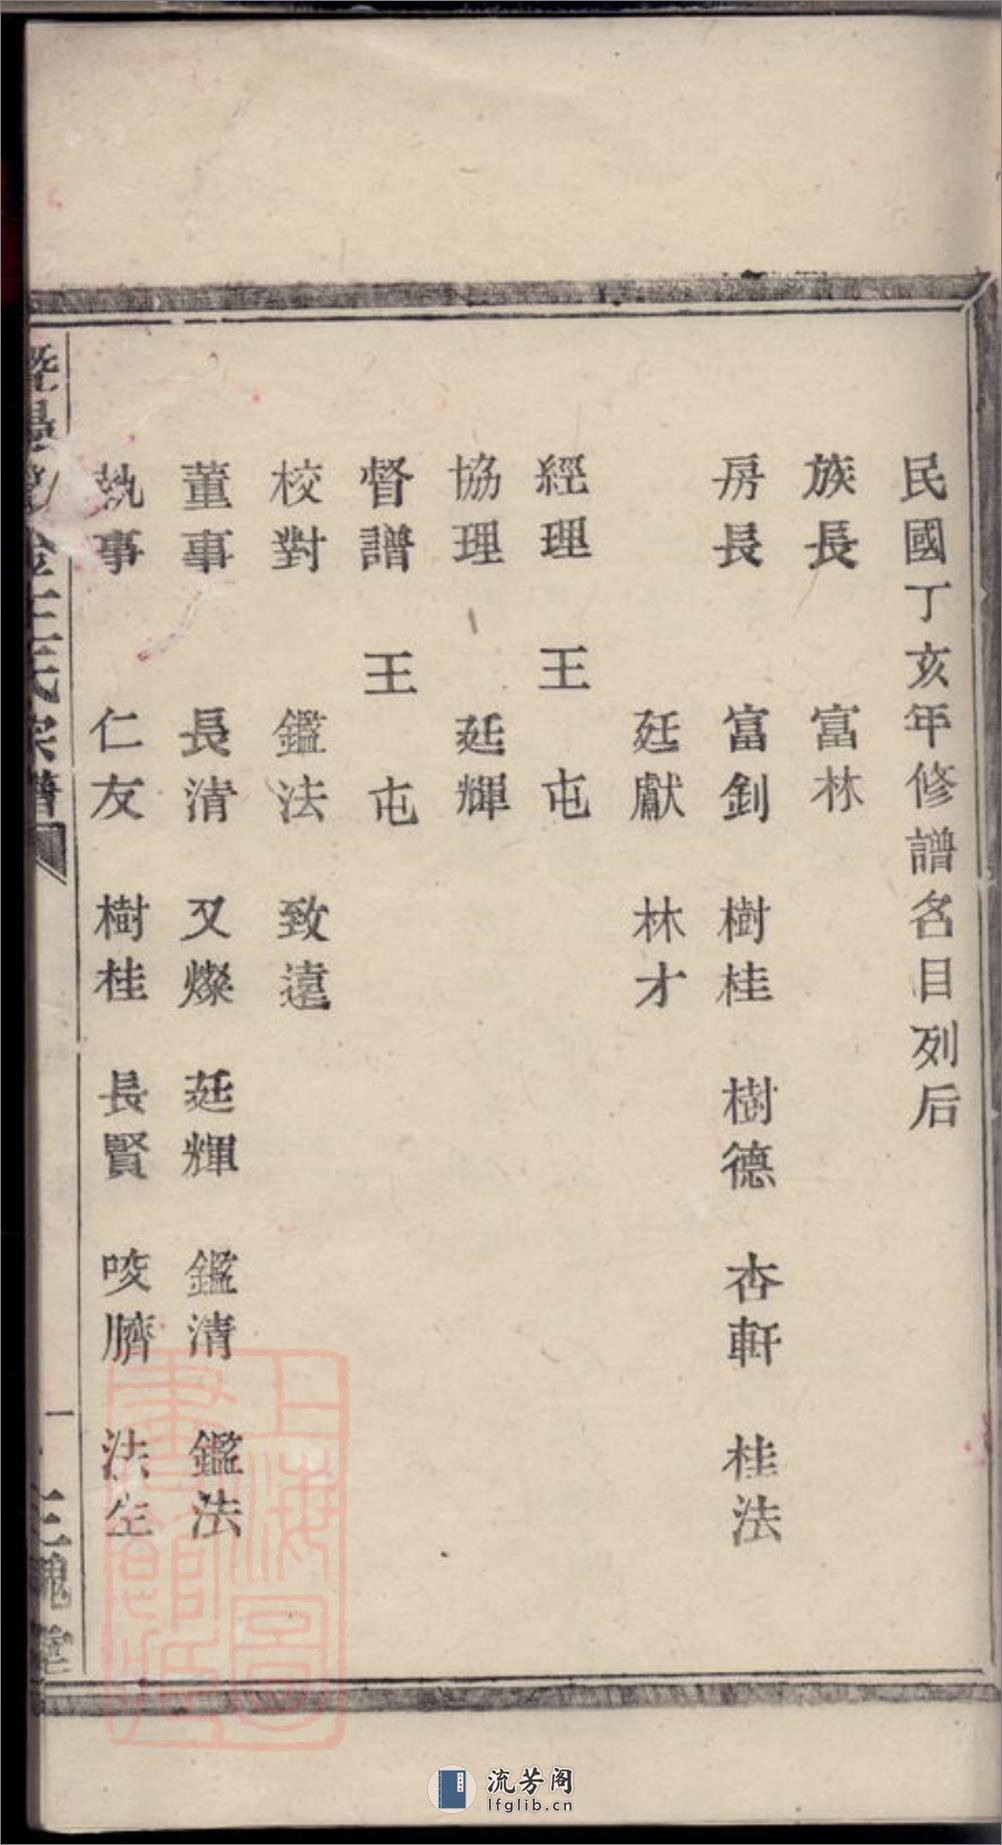 民國丁亥年修譜名目列后
族長 富林
房長 富釗 樹桂 樹德 杏軒 桂法
廷獻 林才
經理 王 屯
協理 廷輝
督譜 王 屯
校對 鑑法 致遠
董事 長清 又燦 廷輝 鑑清 鑑法
執事 仁友 樹桂 長賢 咬臍 法生
暨陽 金王氏宗譜 一 三槐堂
上海圖書館藏
流芳阁
lfglib.cn